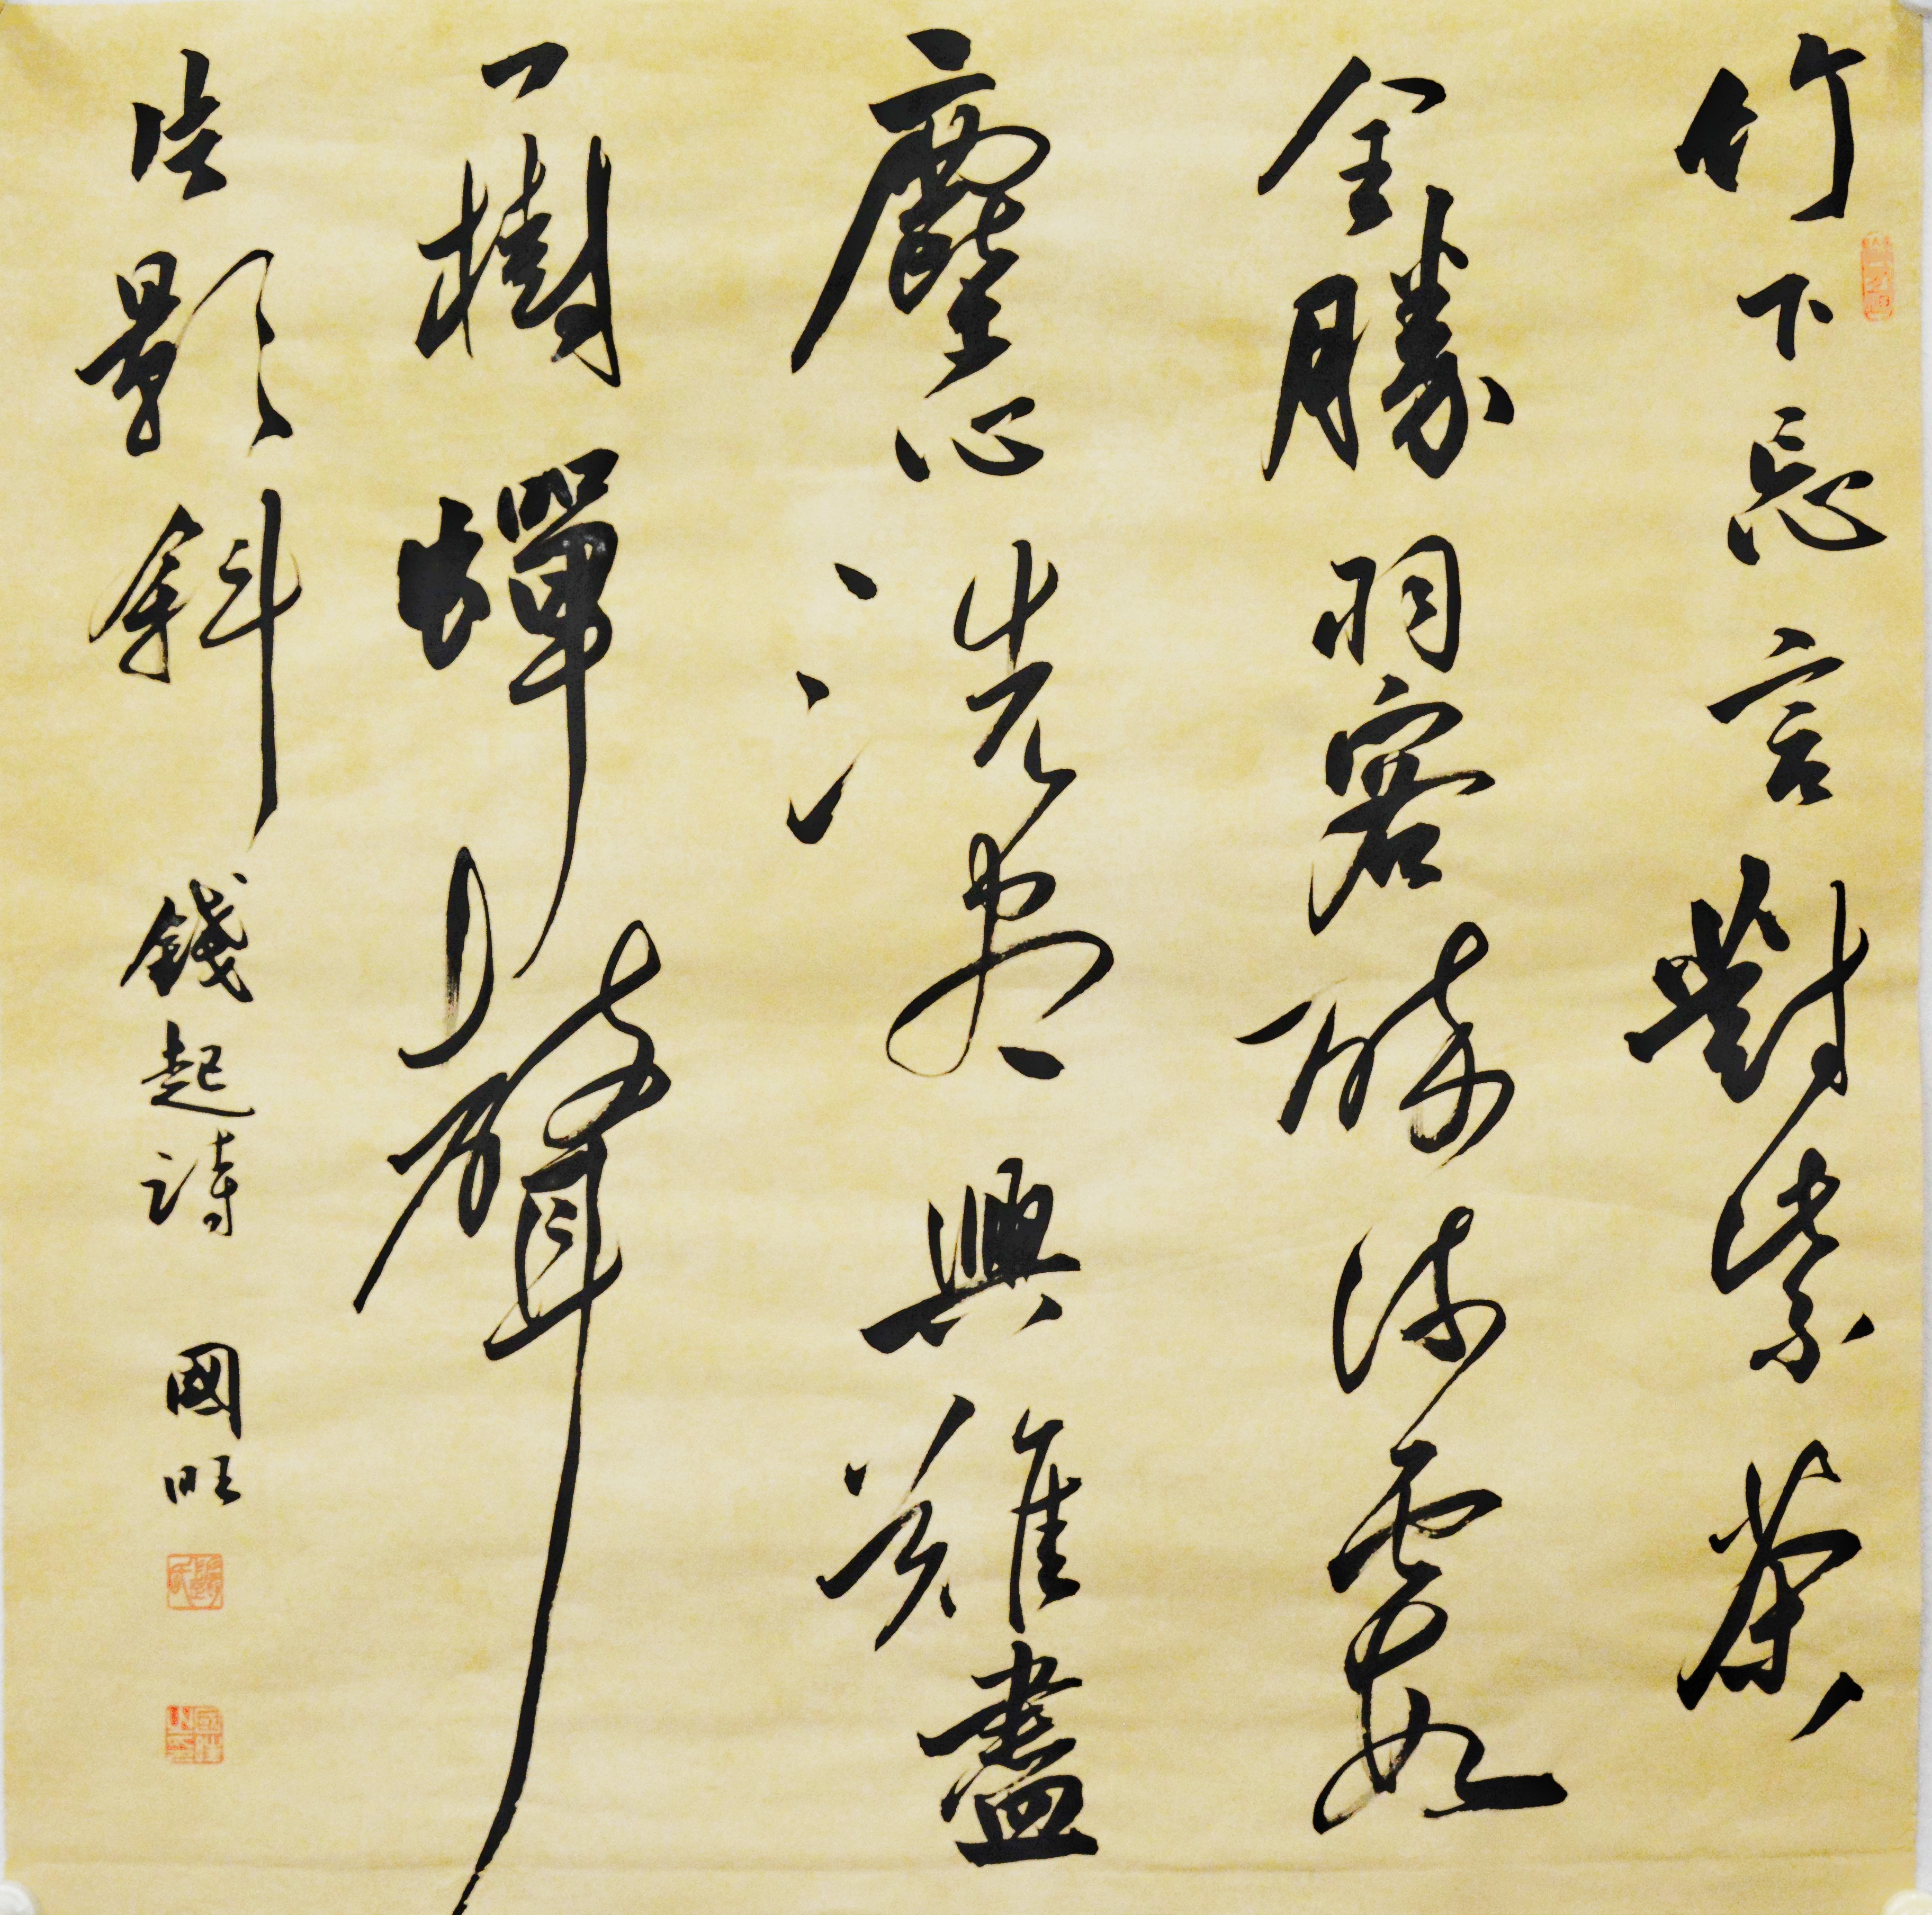 竹下忘言對紫茶
全勝羽客醉流霞
塵心洗盡興難盡
一樹蟬聲
片影斜 錢起詩 國旺